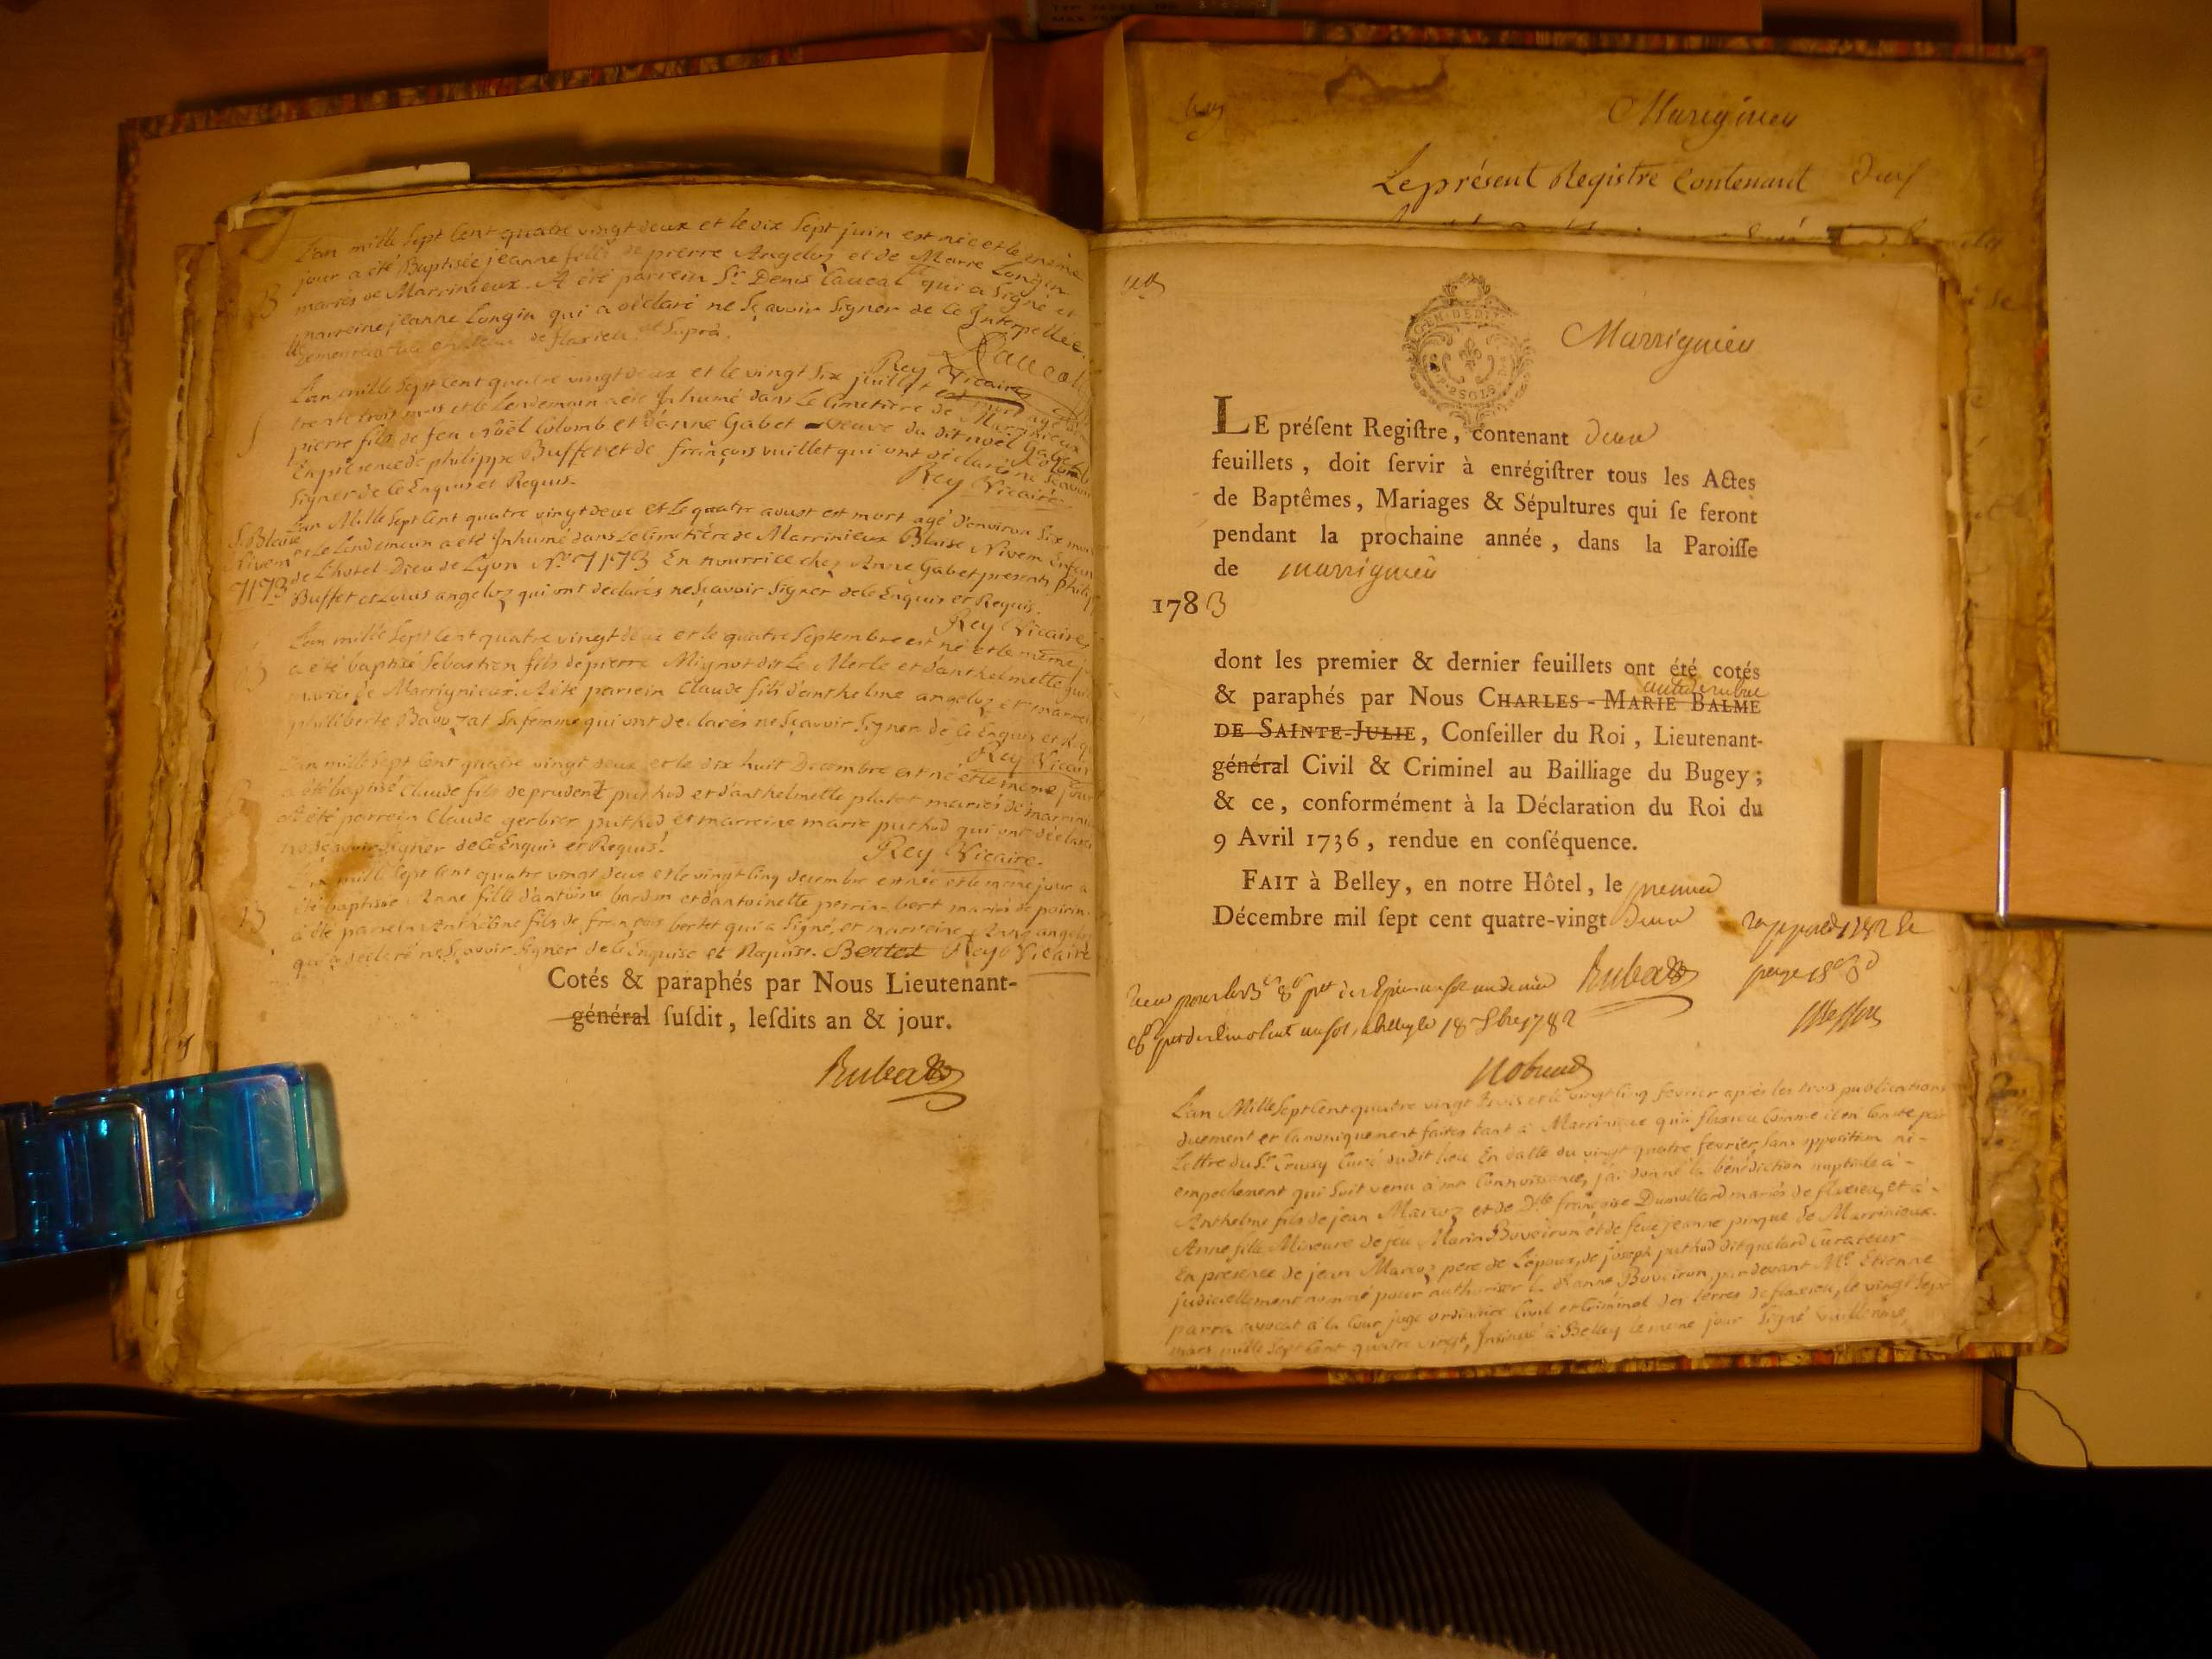 L'an mille Sept Cent quatre vingt deux et le dix Sept juin est née et le même
jour a été Baptisée jeanne fille de pierre Angeloz et de Marie Longin
mariés de Marrinieux. A été parrein Sr Denis Caucal qui a Signé et
marreine jeanne Longin qui a déclaré ne Sçavoir Signer de ce Interpellée.
de flaxieu Suprà.
Rey Vicaire
L'an mille Sept Cent quatre vingt deux et le vingt Six juillet est mort agé
trente trois mois et le Lendemain a été Inhumé dans Le Cimetière de Marrinieux
pierre fils de feu Noël Colomb et d'anne Gabet veuve du dit noël Colomb
En présence de philippe Buffet et de françois vuillet qui ont déclarés ne Sçavoir
Signer de ce Enquis et Requis.
Rey Vicaire
L'an Mille Sept Cent quatre vingt deux et Le quatre aoust est mort agé d'environ Six mois
S. Blaise
et Le Lendemain a été Inhumé dans Le Cimetière de Marrinieux Blaise Nivem Enfant
Nivem
7173
de L'hotel Dieu de Lyon No 7173 En nourrice chez Anne Gabet présents philippe
Buffet et Louis angeloz qui ont déclarés ne Sçavoir Signer de ce Enquis et Requis.
Rey Vicaire
L'an mille Sept Cent quatre vingt deux et le quatre Septembre est né et le même j
a été baptisé Sébastien fils de pierre Mignot dit Le Merle et d'anthelmette
mariés de Marrignieux. A été parrein Claude fils d'anthelme angeloz et marrei
philiberte Bavozat Sa femme qui ont déclarés ne Sçavoir Signer de ce Enquis et Requis
Rey Vicaire
L'an mille Sept Cent quatre vingt deux et le dix huit Decembre est né et le même jour
a été baptisé Claude fils de prudent puthod et d'anthelmette platet mariés de marrini
A été parrein Claude gerbier puthod et marreine marie puthod qui ont déclarés
ne Sçavoir Signer de ce Enquis et Requis.
Rey Vicaire.
L'an mille Sept Cent quatre vingt deux et le vingt Cinq decembre est née et le même jour a
été baptisée Anne fille d'antoine bardin et d'antoinette perrin
a été parrein anthelme fils de françois bertet qui a Signé, et marreine Anne angeloz
qui a déclaré ne Sçavoir Signer de ce Enquise et Requise. Bertet Rey Vicaire
Cotés & paraphés par Nous Lieutenant-
général ſuſdit, leſdits an & jour.
Marignieu
Le présent Registre Contenant deux
Marrignieu
GEN. DE DI
2 SOLS
LE préſent Regiſtre, contenant deux
feuillets, doit ſervir à enrégiſtrer tous les Actes
de Baptêmes, Mariages & Sépultures qui ſe feront
pendant la prochaine année, dans la Paroiſſe
de marrignieu
1783
dont les premier & dernier feuillets ont été cotés
& paraphés par Nous CHARLES-MARIE BALME
DE SAINTE-JULIE, Conſeiller du Roi, Lieutenant-
général Civil & Criminel au Bailliage du Bugey;
& ce, conformément à la Déclaration du Roi du
9 Avril 1736, rendue en conſéquence.
FAIT à Belley, en notre Hôtel, le premier
Décembre mil ſept cent quatre-vingt deux
L'an Mille Sept Cent quatre vingt trois et le vingt Cinq fevrier après les trois publications
duement et Canoniquement faites tant à Marrinieux qu'à flaxieu Comme il en Conste par
Lettre du Sr Crussy Curé du dit lieu En datte du vingt quatre fevrier, Sans opposition ni
empechement qui Soit venu à ma Connoissance, j'ai donné la bénédiction nuptiale à
Anthelme fils de jean Marcoz et de Dlle françoise Dumollard mariés de flaxieu, et à
Anne fille Mineure de feu Marin Bovoiron et de feue jeanne pingue de Marrinieux.
En présence de jean Marcoz pere de L'époux, de joseph puthod dit quelard Curateur
judiciellement nommé pour authoriser la dte anne Bovoiron, par devant Me Etienne
parra avocat à la Cour juge ordinaire Civil et Criminel des terres de flaxieu, le vingt Sept
mars mille Sept Cent quatre vingt, Insinué à Belley le meme jour Signé vuillerme,